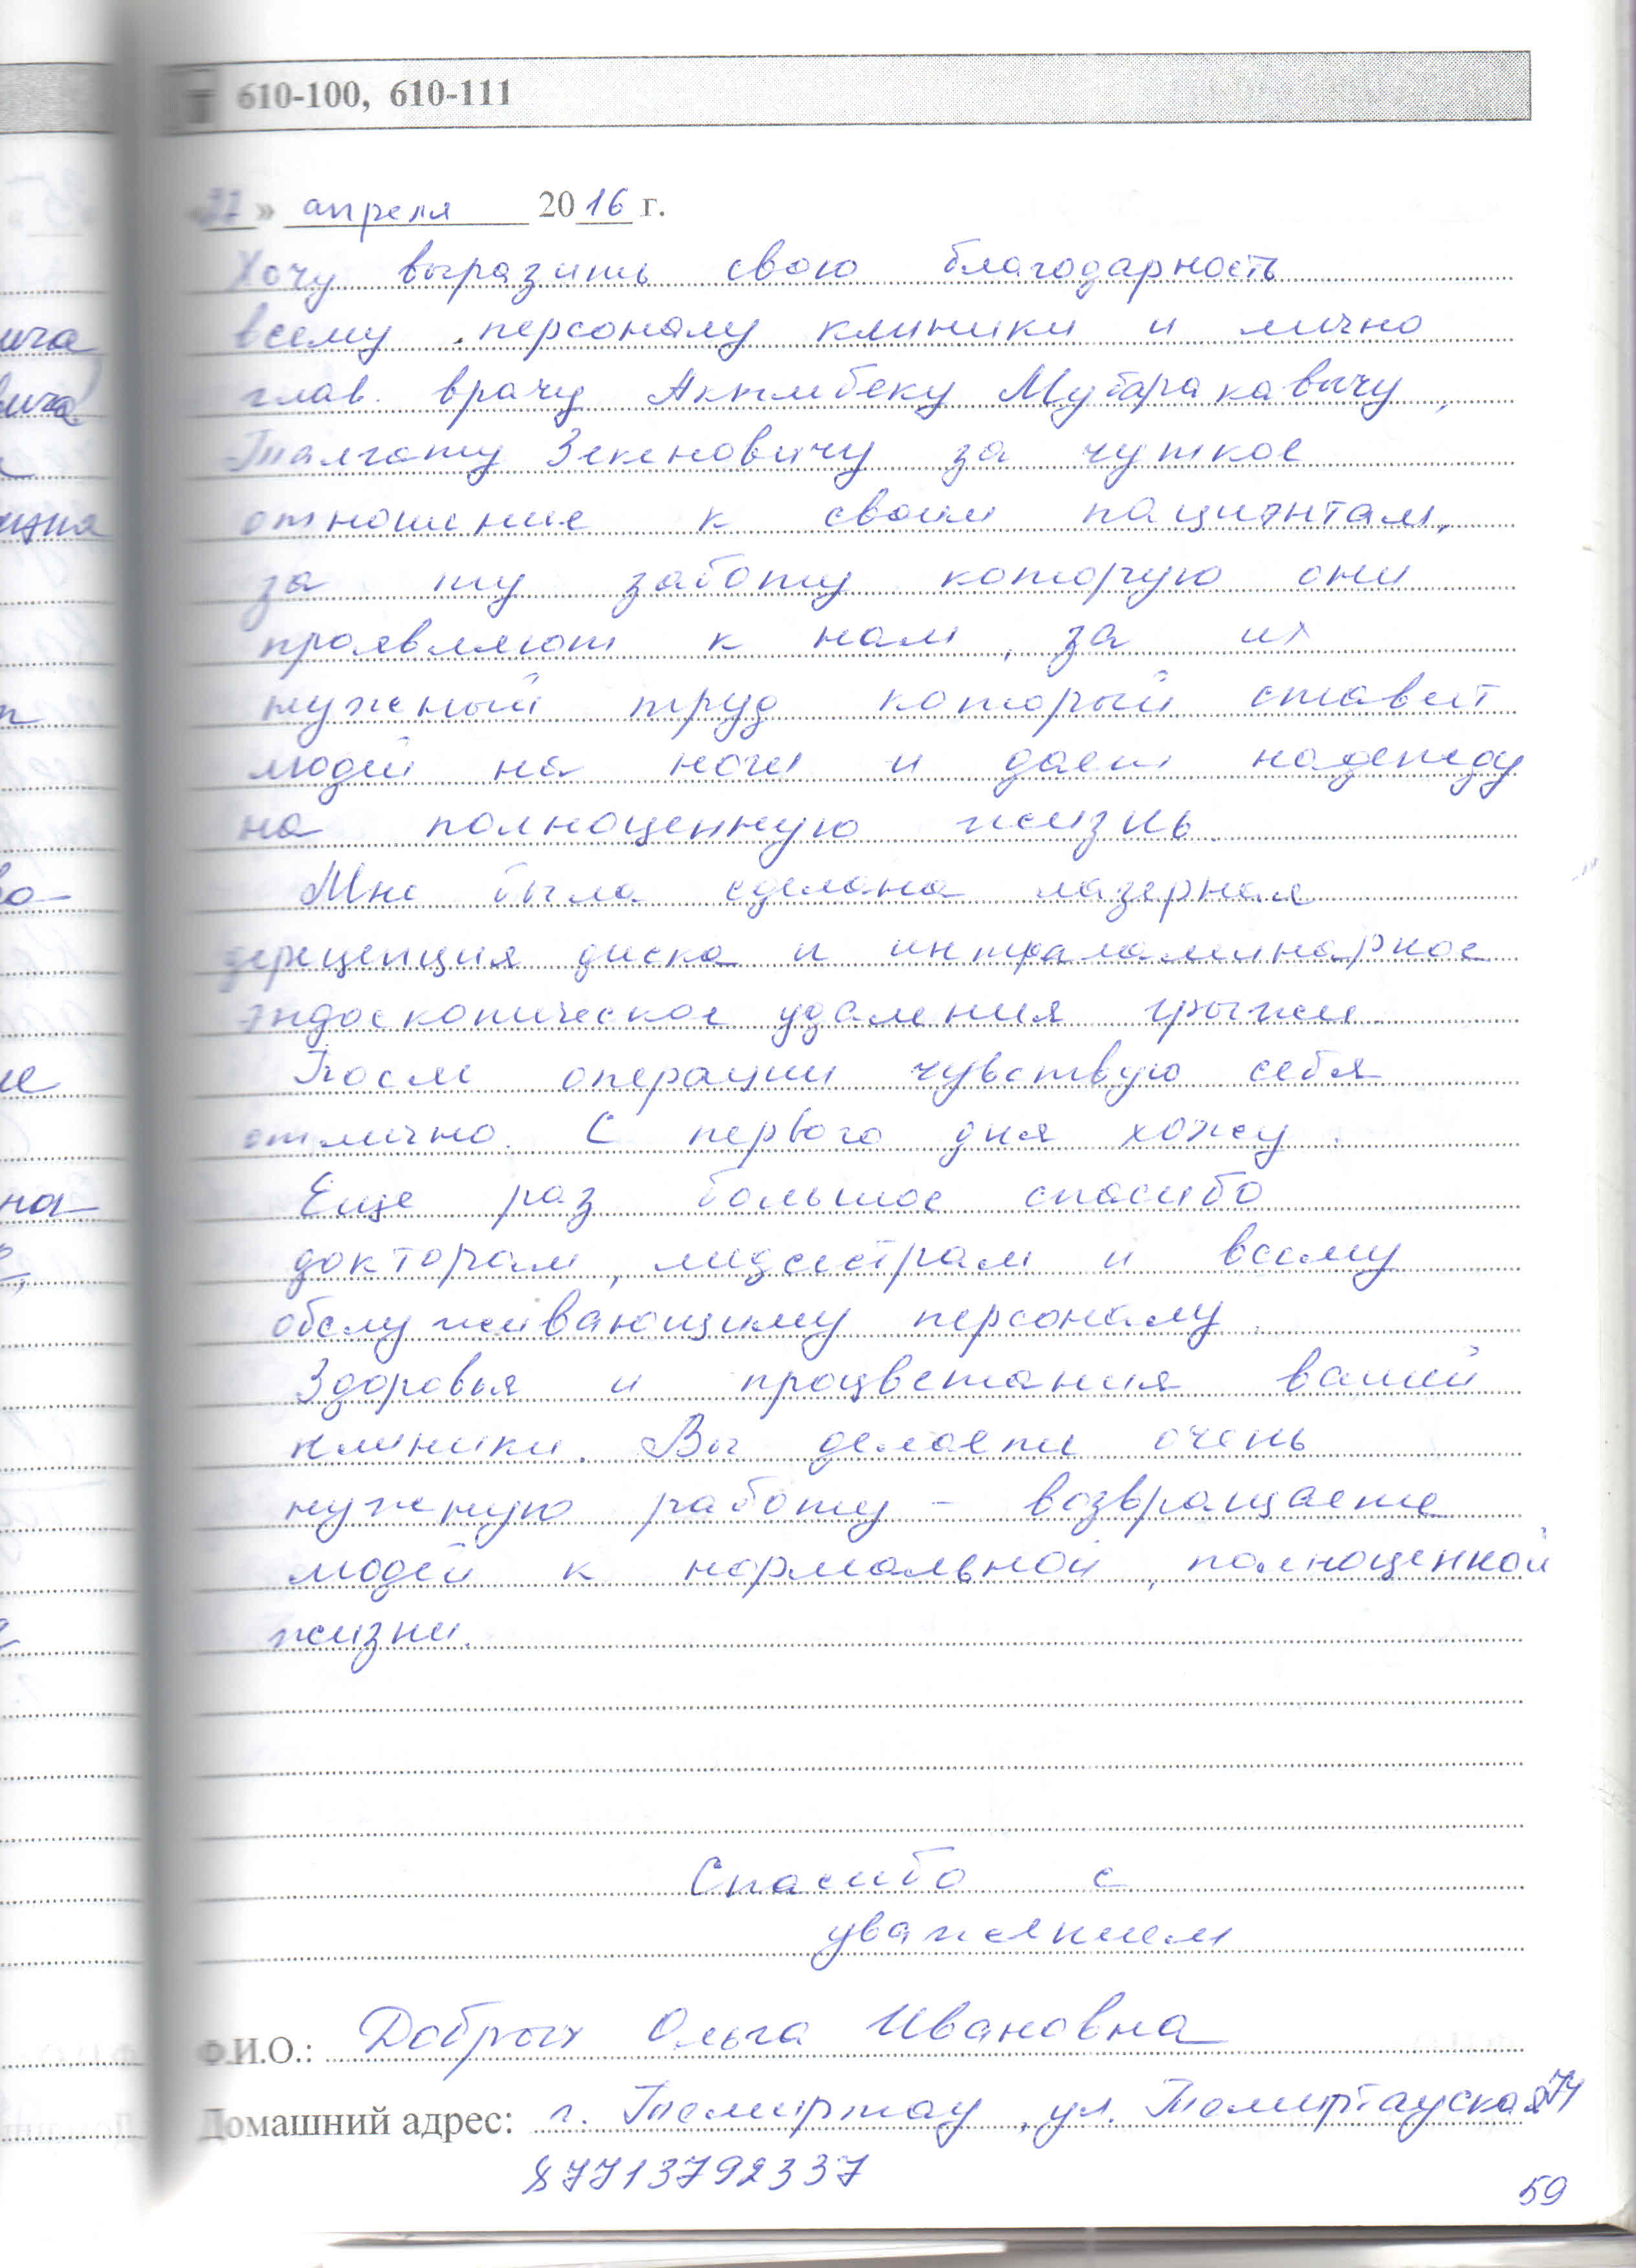 610-100, 610-111
» апреля 2016 г.
Хочу выразить свою благодарность
всему персоналу клиники и лично
глав. врачу Актлбеку Мубаракавичу,
Талгату Зекеновичу за чуткое
отношение к своим пациэнтам,
за ту заботу которую они
проявляют к нам, за их
нужный труд который ставит
людей на ноги и дает надежду
на полноценную жизнь.
Мне была сделана лазерная
дерецепция диска и интраламинарное
эндоскопическое удаления грыжи
После операции чувствую себя
отлично. С первого дня хожу.
Еще раз большое спасибо
докторам, медсестрам и всему
обслуживающиму персоналу.
Здоровья и процветания вашей
клиники. Вы делаете очень
нужную работу – возвращаете
людей к нормальной, полноценной
жизни.
Спасибо с
уважением
Ф.И.О.: Добрых Ольга Ивановна
Домашний адрес: г. Темиртау, ул. Темиртауская
87713792337
59
ича
вича
на